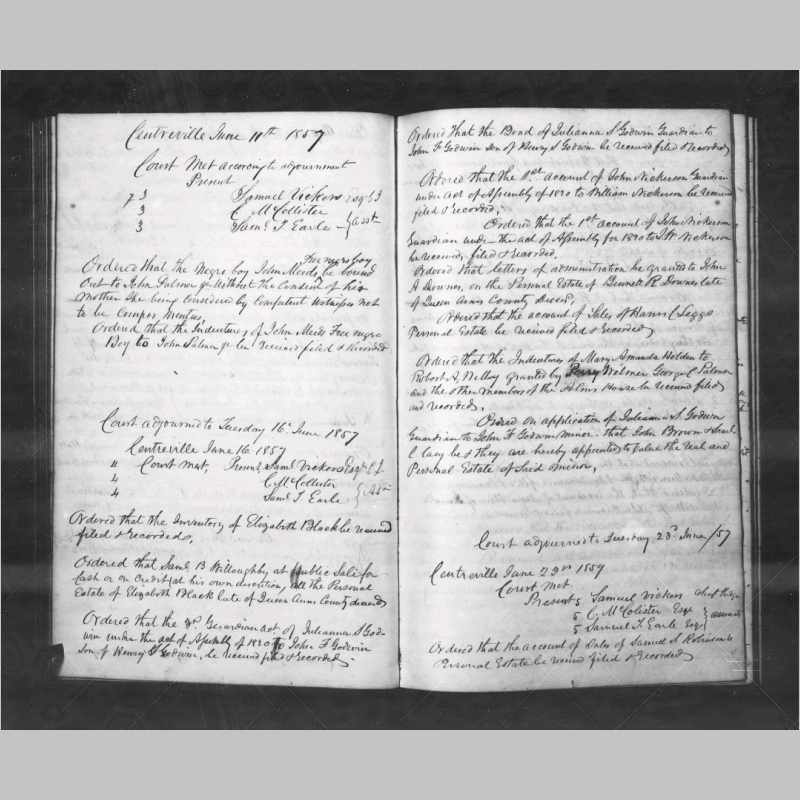 Centreville June 11th 1857
Court Met according to adjournment
Present
7 3 Samuel Vickers Esqr C J
3 C McCollister
3 Saml T Earle Asst
Free negro boy
Ordered that the Negro boy John Meeds be bound
Out to John Palmer jr Without the Consent of his
Mother She being Considered by Competent Witnesses not
to be Compos Mentus,
Ordered that the Indentures of John Meeds Free negro
Boy to John Palmer jr be received filed & Recorded
Court adjourned to Tuesday 16th June 1857
Centreville June 16 1857
" Court Met. Present Saml Vickers Esqr C J
4 C McCollister
4 Saml T Earle Asst
Ordered that the Inventory of Elizabeth Black be received
filed & recorded,
Ordered that Saml B Willoughby at public Sale for
Cash or on Credit at his own discretion, sell the Personal
Estate of Elizabeth Black late of Queen Anns County deceased
Ordered that the Guardian act of Julianna S God-
win under the act of Assembly of 1820 to John F Godwin
Son of Henry S Godwin, be received filed & recorded.
Ordered that the Bond of Julianna S Godwin Guardian to
John F Godwin Son of Henry S Godwin be received filed & recorded
Ordered that the 1st account of John Nickerson Guardian
under act of Assembly of 1820 to William Nickerson be received
filed & recorded,
Ordered that the 1st account of John Nickerson
Guardian under the act of Assembly for 1820 to Nickerson
be received, filed & recorded,
Ordered that letters of administration be granted to John
A Downes, on the Personal Estate of Bennett R Downes late
of Queen Anns County Decsd,
Ordered that the account of Sales of Leggs
Personal Estate be received filed & recorded
Ordered that the Indentures of Mary Amanda Holden to
Robert A, granted by Perry Wilmer George Palmer
and the Other Members of the Alms House be received filed
and recorded,
Ordered on application of Julianna S. Godwin
Guardian to John F Godwin Minor. that John Brown & Saml
be & they are hereby appointed to Value the real and
Personal Estate of Said Minor,
Court adjourned to Tuesday 23rd June /57
Centreville June 23rd 1857
Court Met
Present 5 Samuel Vickers Chief Judge
5 C McCollister Esqr
5 Samuel T Earle Esqr
Ordered that the account of Sales of Samuel S Robinson's
Personal Estate be received filed & recorded